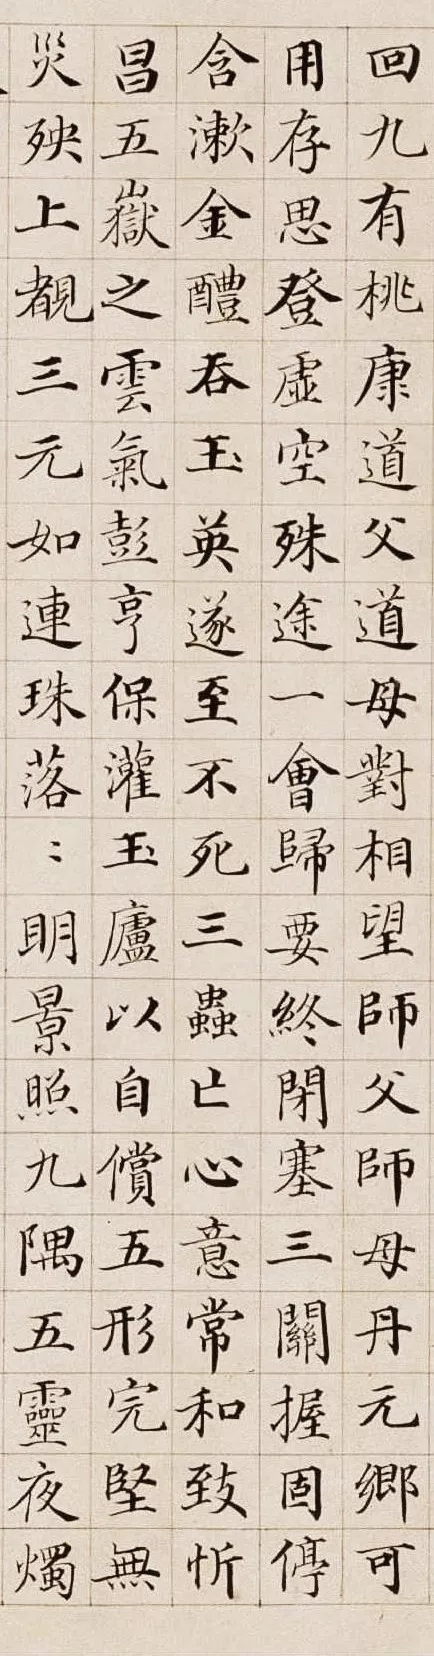 回九有桃康道父道母對相望師父師母丹元鄉可
用存思登虛空殊途一會歸要終閉塞三關握固停
含漱金醴吞玉英遂至不死三蟲亡心意常和致忻
昌五嶽之雲氣彭亨保灌玉廬以自償五形完堅無
災殃上覩三元如連珠落〻明景照九隅五靈夜燭